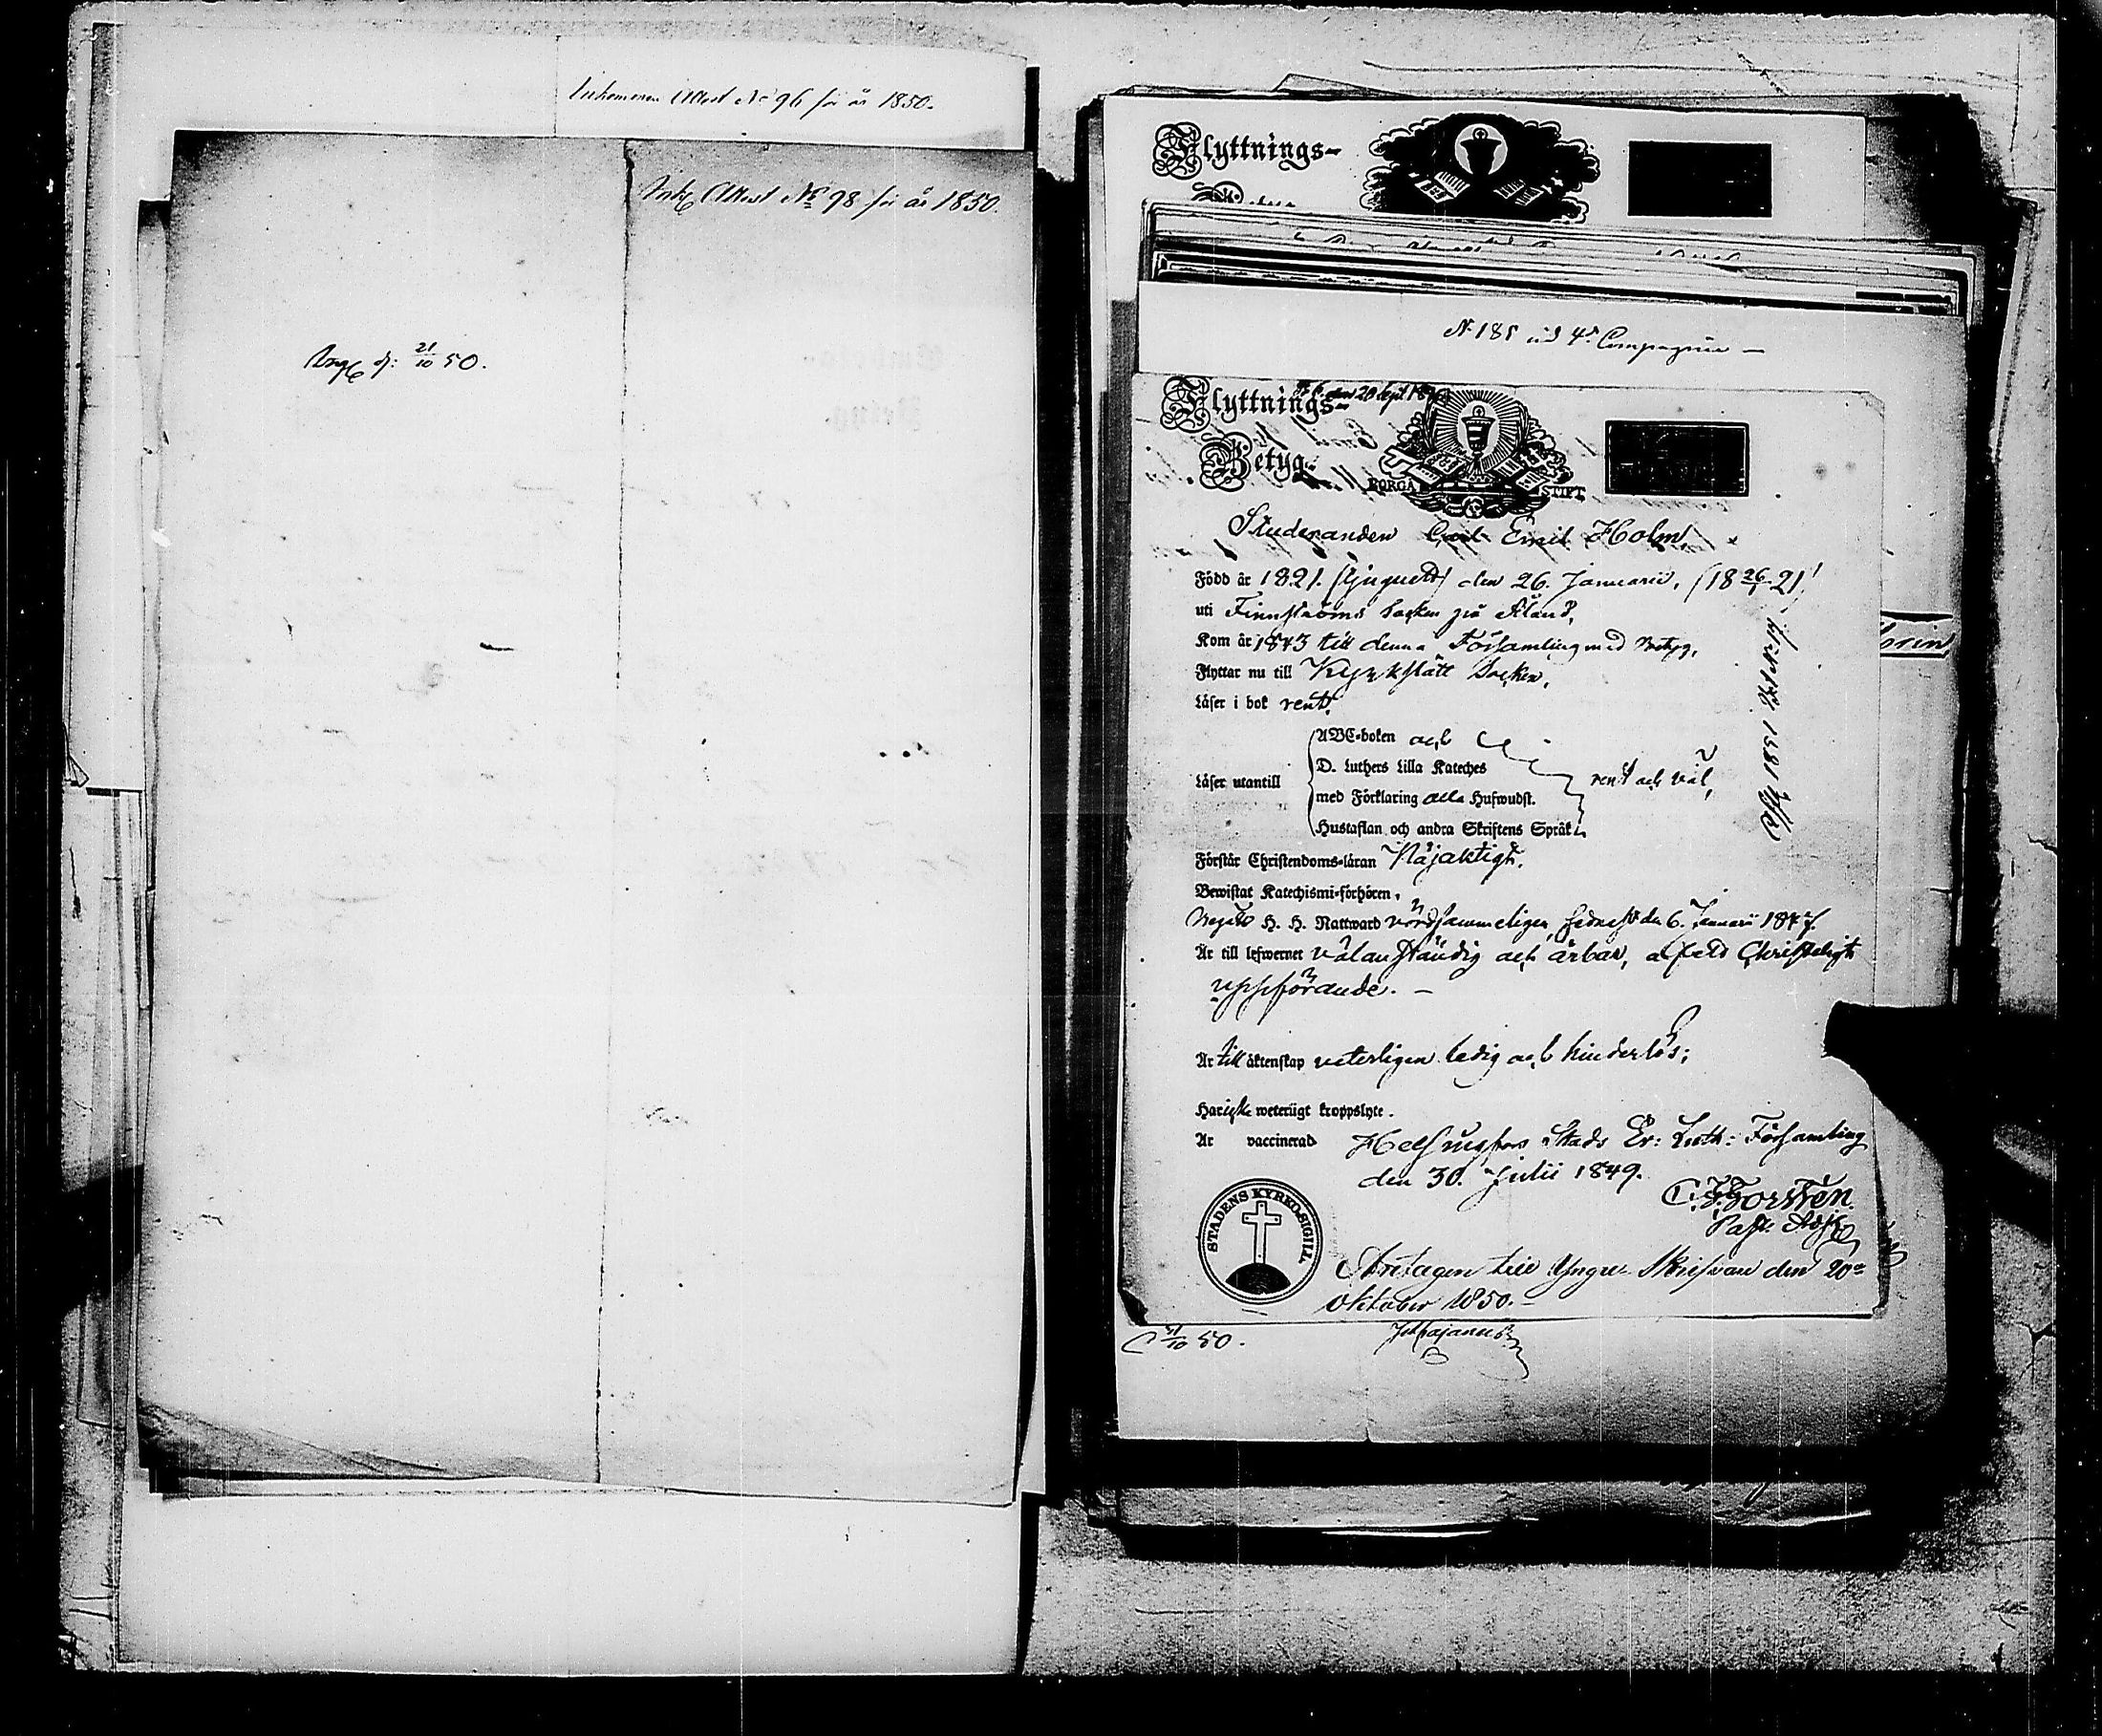 Inkommen Attest No 96 för år 1850.
Ink Attest No 98 för år 1850.
d: 21/10 50.
Flyttnings-
No 185 vid 4de Compagnie —
Flyttnings-
den 20 Sept
Betyg.
BORGÅ STIFT
Studeranden Carl Emil Holm,
Född år 1821. den 26. Januarii, (18 26/1 21)
uti Finnströms Socken på Åland,
Kom år 1843 till denna Församling med Betyg,
Flyttar nu till Kyrkslätt Socken,
Läser i bok rent,
ABC-boken och
D. Luthers Lilla Kateches
Läser utantill rent och väl,
med Förklaring alla Hufwudst.
Hustaflan och andra Skriftens Språk
Förstår Christendoms-läran Nöjaktigt.
Bewistat Katechismi-förhören,
Begått H. H. Nattward vördsammeligen, sednast den 6. Januarii 1847.
Är till lefwernet välanständig och ärbar, af Christeligt
uppförande. —
Är till äktenskap veterligen ledig och hinderlös;
Har icke weterligt kroppslyte.
Är vaccinerad
Helsingfors Stads Ev: Luth: Församling
den 30. Julii 1849.
C. F. Forstén.
Past. Adj.
STADENS KYRKO-SIGILL
Antagen till Yngre Skrifvare den 20de
Oktober 1850. —
50.